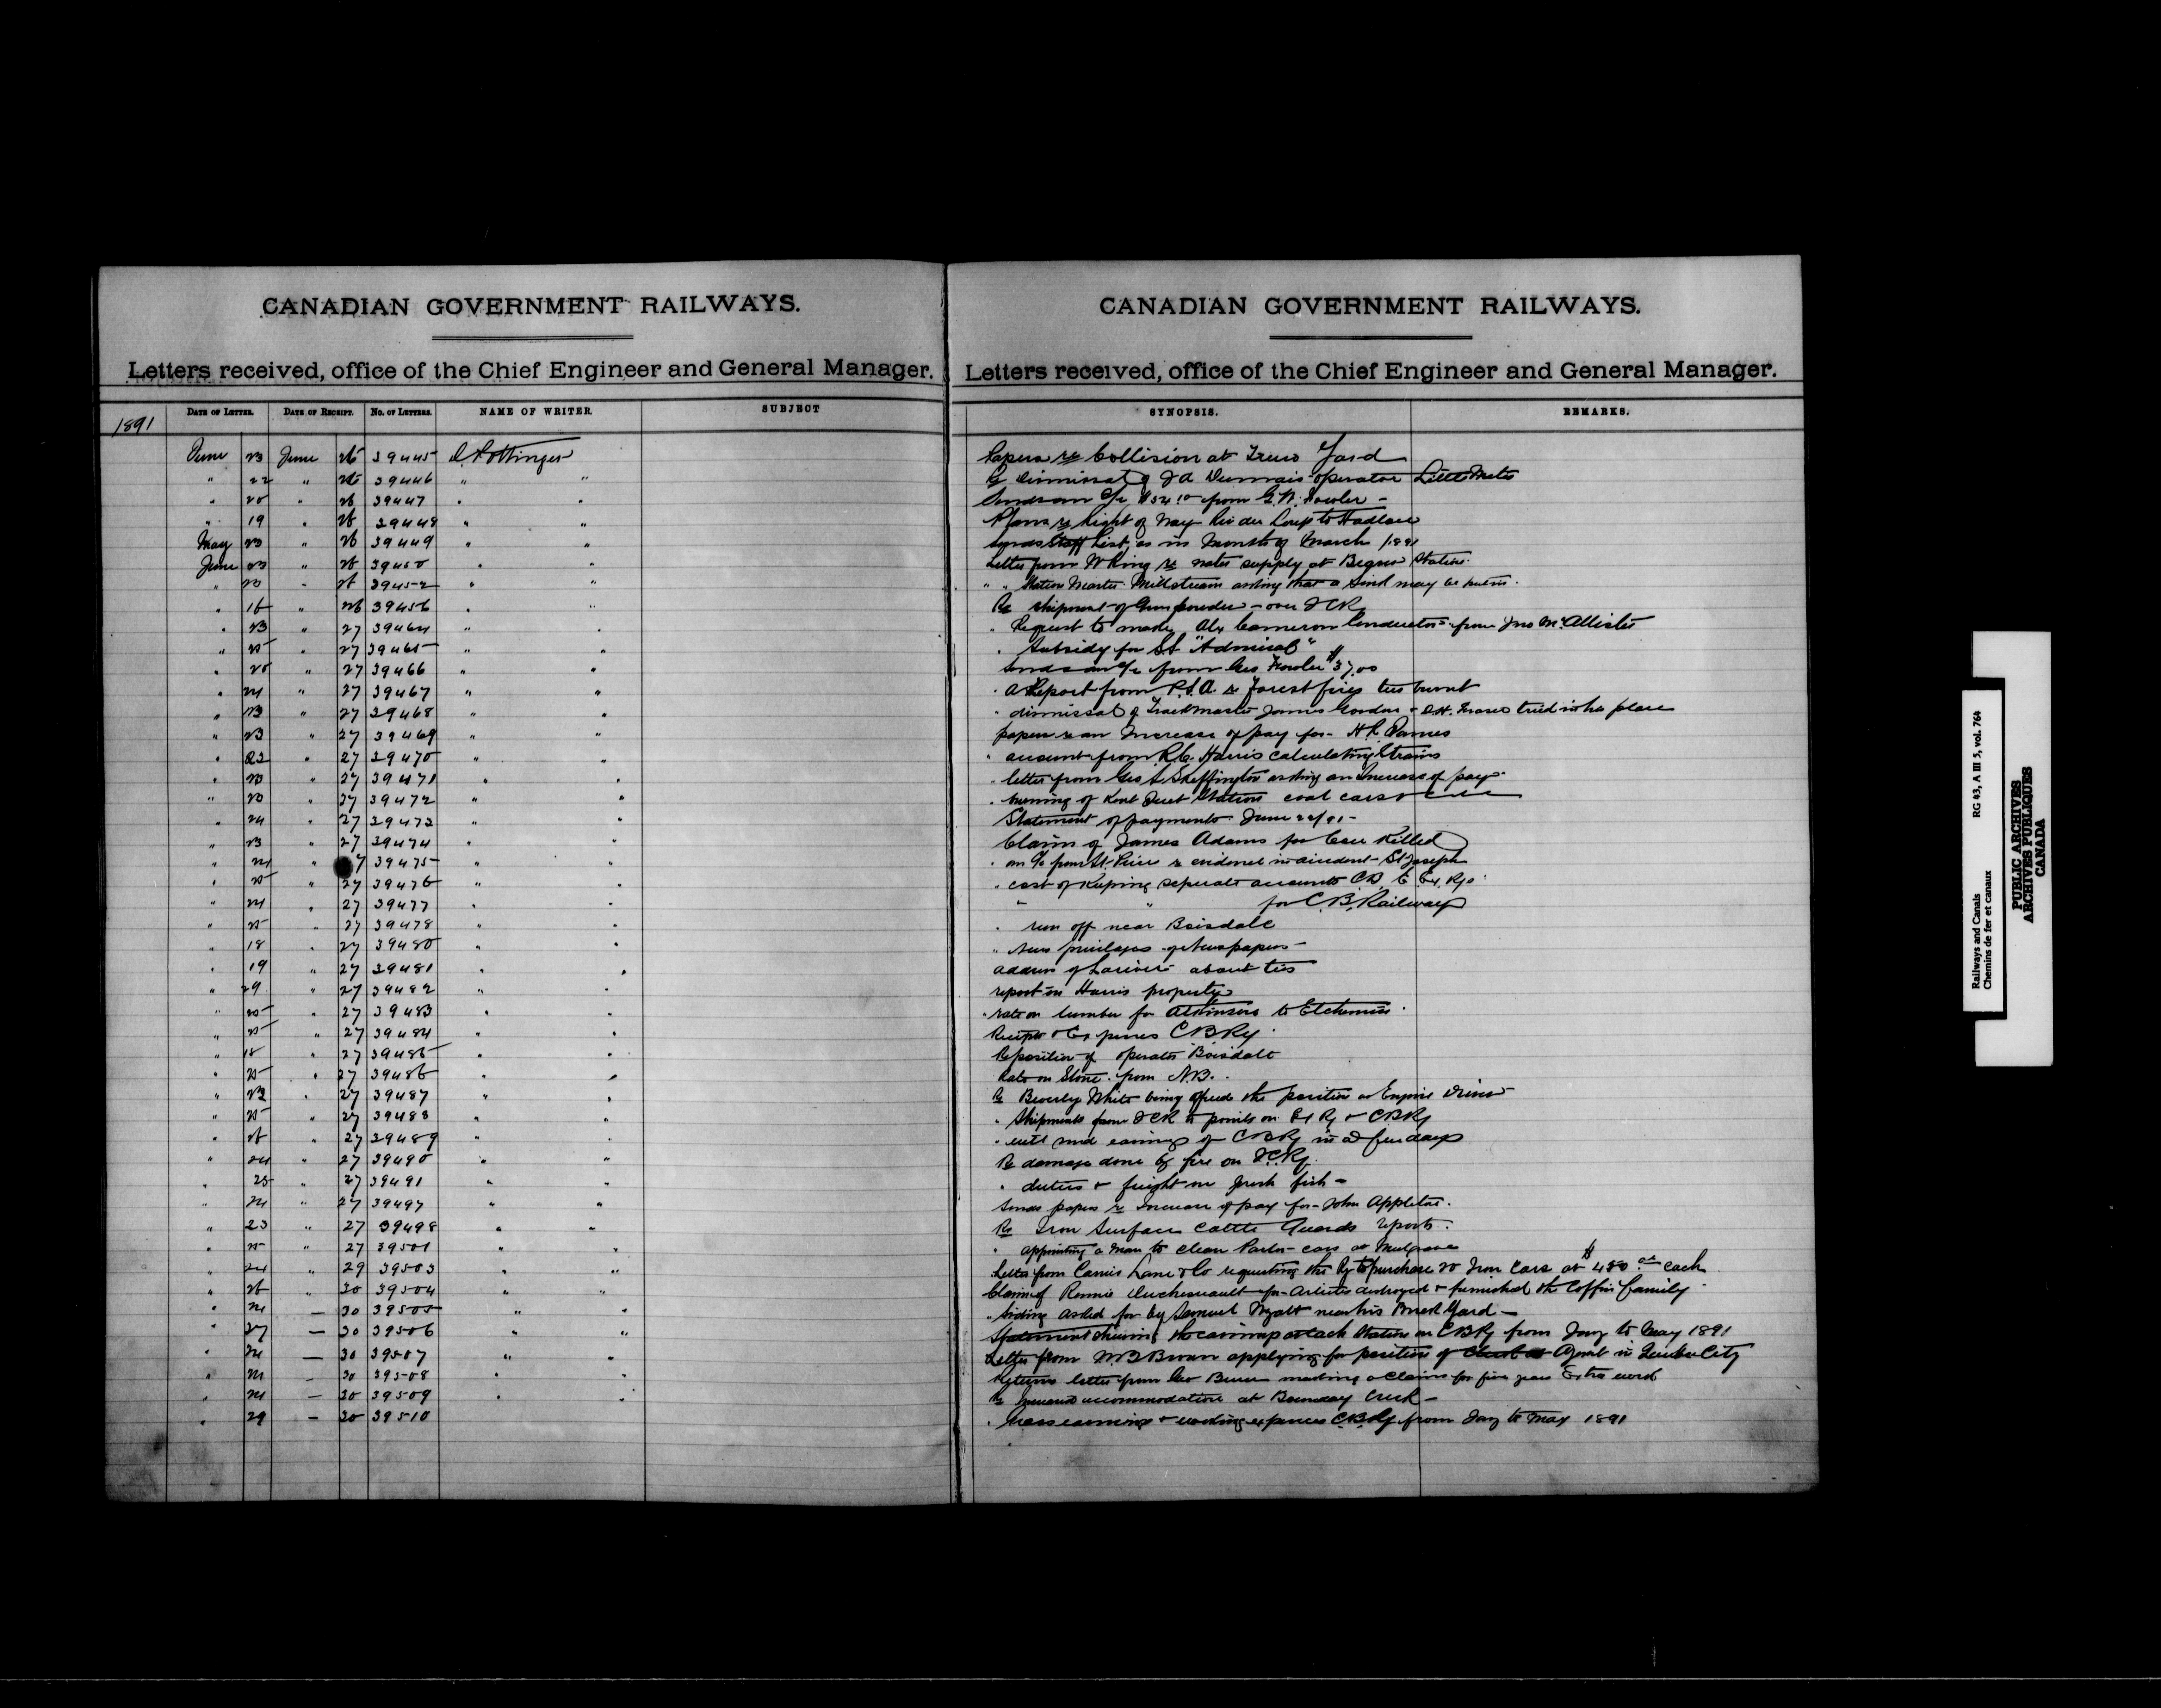 CANADIAN GOVERNMENT RAILWAYS.
Letters received, office of the Chief Engineer and General Manager.
1891 DATE OF LETTER. DATE OF RECEIPT. No. OF LETTERS. NAME OF WRITER. SUBJECT
June 23 June 26 39445 D. Pottinger
" 22 " 26 39446 " "
" 20 " 26 39447 " "
" 19 " 26 39448 " "
May 23 " 26 39449 " "
June 23 " 26 39450 " "
" 23 " 26 39452 " "
" 16 " 26 39456 " "
" 23 " 27 39464 " "
" 25 " 27 39465 " "
" 20 " 27 39466 " "
" 24 " 27 39467 " "
" 23 " 27 39468 " "
" 23 " 27 39469 " "
" 22 " 27 39470 " "
" 23 " 27 39471 " "
" 23 " 27 39472 " "
" 24 " 27 39473 " "
" 23 " 27 39474 " "
" 24 " 7 39475 " "
" 25 " 27 39476 " "
" 24 " 27 39477 " "
" 25 " 27 39478 " "
" 18 " 27 39480 " "
" 19 " 27 39481 " "
" 29 " 27 39482 " "
" 25 " 27 39483 " "
" 25 " 27 39484 " "
" 18 " 27 39485 " "
" 25 " 27 39486 " "
" 23 " 27 39487 " "
" 25 " 27 39488 " "
" 26 " 27 39489 " "
" 24 " 27 39490 " "
" 25 " 27 39491 " "
" 24 " 27 39497 " "
" 23 " 27 39498 " "
" 25 " 27 39501 " "
" 24 " 29 39503 " "
" 26 " 30 39504 " "
" 24 — 30 39505 " "
" 27 — 30 39506 " "
" 24 — 30 39507 " "
" 24 — 30 39508 " "
" 24 — 30 39509 " "
" 29 — 30 39510
CANADIAN GOVERNMENT RAILWAYS.
Letters received, office of the Chief Engineer and General Manager.
SYNOPSIS. REMARKS.
Papers re Collision at Truro Yard
Re dismissal of J A Dumais operator Little Metis
Sends an a/c $54.10 from G. W. Fowler —
Plans re Right of Way Riv du Loup to Hadlow
Sends Staff List, as in Month of March 1891
Letter from W King re water supply at Station
" " Station Master Millstream asking that a Sink may be put in.
Re shipment of Gunpowder — over ICR
" Request to make Alx Cameron Conductor — from Jno McAllister
" Subsidy for SS "Admiral"
Sends an a/c from Geo Fowler $37.00
" a Report from P.S.A. re forest fires ties burnt
" dismissal of Trackmaster James Gordon & D.H. Fraser tried in his place
papers re an Increase of pay for H R
" account from R.C. Harris calculating Strains
" letter from Geo A Skeffington asking an Increase of pay
" burning of Kent Junct Station coal cars &
Statement of payments June 22/91 —
Claim of James Adams for Cow Killed
" an a/c from St. Pierre re evidence in accident St Joseph
" cost of Keeping seperate accounts C.B. & Ex. Rys
" " for C.B. Railway
" run off near Boisdale
" News privileges of Newspapers —
Address of Lariviere about ties
report on Harris property
" rate on lumber for Atkinson to Etchemin
Receipts & Expenses C B Ry
Reposition of operator Boisdale
Rate on Stone from N.B.
Re Beverly White being offered the position as Engine Driver
" Shipments from ICR to points on Ex Ry & C B Ry
" will send earnings of C B Ry in a few days
Re damage done by fire on I.C.Ry.
" duties & freight on fresh fish —
Sends papers re Increase of pay for John Appleton.
Re Iron Surface Cattle Guards reports.
" appointing a man to clean Parlor cars at Mulgrave
Letter from Carrie Lane & Co requesting the Ry to purchase 20 Iron Cars at $450.00 each
Claim of Duchesneault for Articles destroyed & furnished the Coffin family
" Siding asked for by Samuel Wyatt near his Brick Yard —
Statement shewing the earnings at each Station on C B Ry from Jany to May 1891
Letter from W B Brown applying for position of Agent in Quebec City
Returns letter from Geo making a Claim for five years Extra work
Re Increased accommodation at Boundary Creek —
" Gross earnings & working expenses C B Ry from Jany to May 1891
Railways and Canals RG 43, A III 5, vol. 764
Chemins de fer et canaux
PUBLIC ARCHIVES
ARCHIVES PUBLIQUES
CANADA